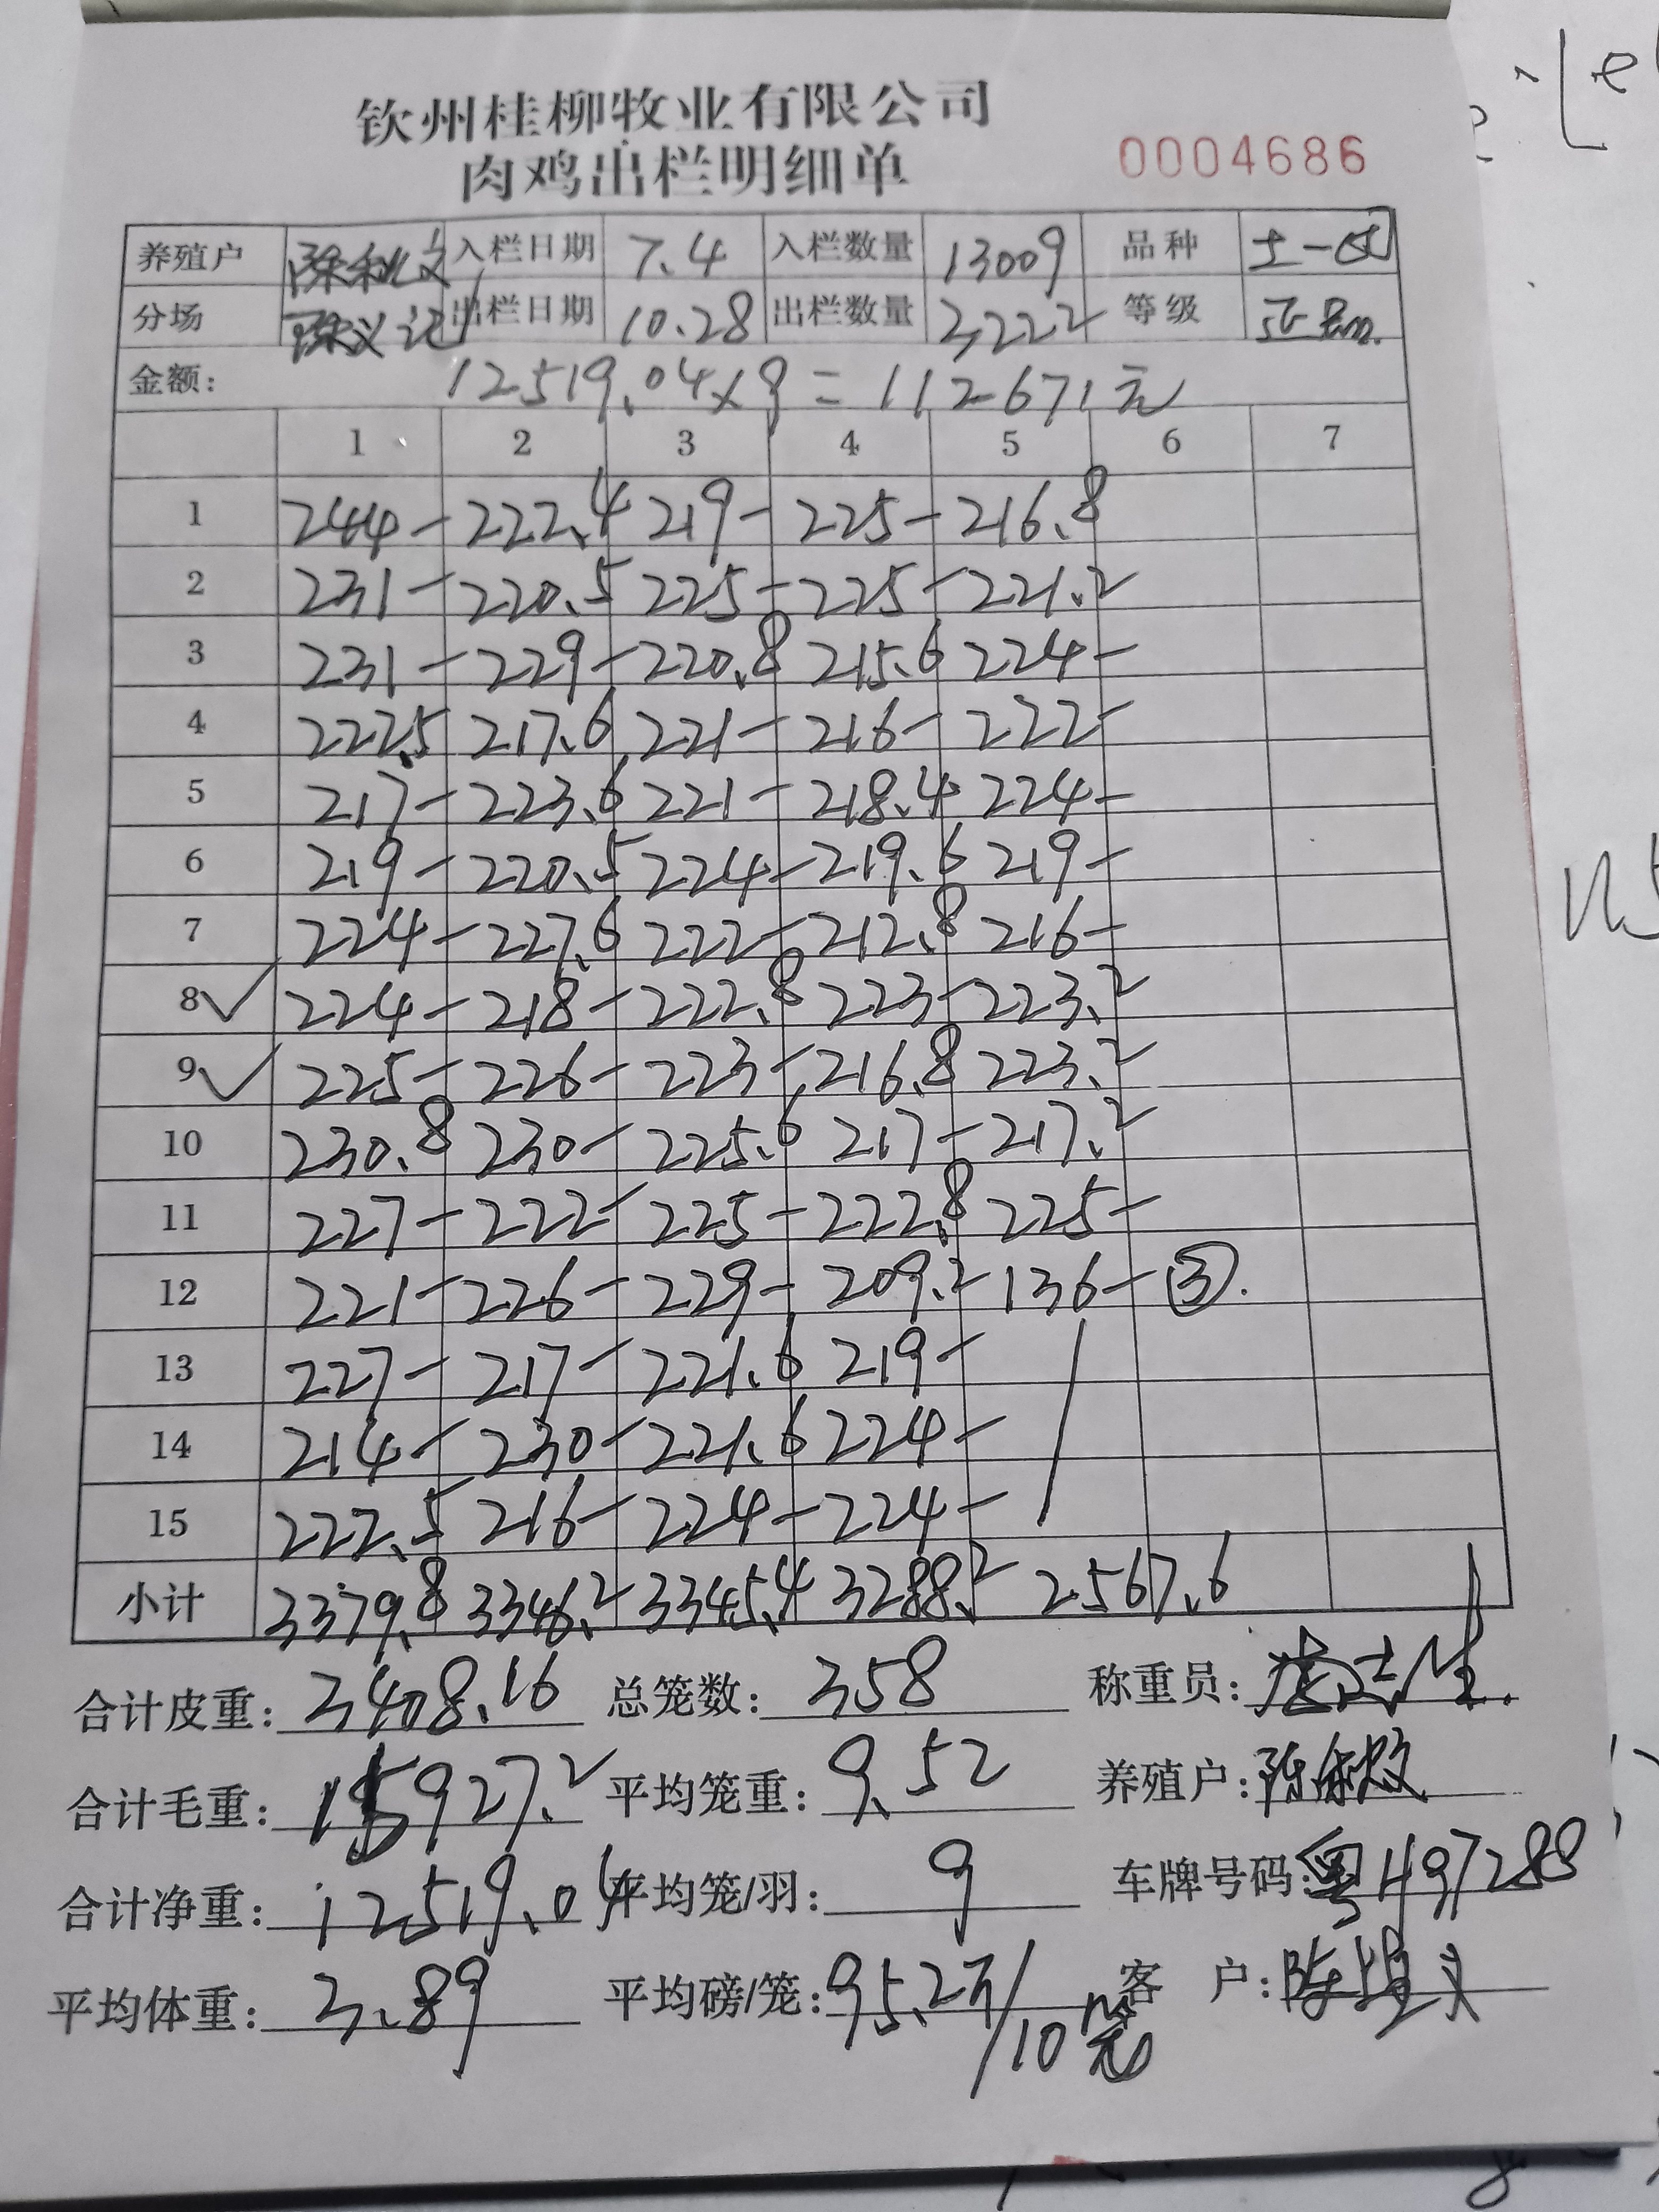 钦州桂柳牧业有限公司
肉鸡出栏明细单 0004686
养殖户 入栏日期 7.4 入栏数量 13009 品种 土一
分场 陈义记 出栏日期 10.28 出栏数量 3222 等级 正品
金额: 12519.04x9=112671元
1 2 3 4 5 6 7
1 244- 222.4 219- 225- 216.8
2 231- 220.5 225- 225- 221.2
3 231- 229- 220.8 215.6 224-
4 222.5 217.6 221- 216- 222-
5 217- 223.6 221- 218.4 224-
6 219- 220.5 224- 219.6 219-
7 224- 227.6 222- 212.8 216-
8✓ 224- 218- 222.8 223- 223.2
9✓ 225- 226- 223- 216.8 223.2
10 230.8 230- 225.6 217- 217.2
11 227- 222- 225- 222.8 225-
12 221- 226- 229- 209.2 136- ③.
13 227- 217- 221.6 219-
14 214- 230- 221.6 224-
15 222.5 216- 224- 224-
小计 3379.8 3346.2 3345.4 3288.2 2567.6
合计皮重: 3408.16 总笼数: 358 称重员:
合计毛重: 15927.2 平均笼重: 9.52 养殖户:
合计净重: 12519.04 平均笼/羽: 9 车牌号码: 粤H97288
平均体重: 3.89 平均磅/笼: 95.2斤/10笼 客 户: